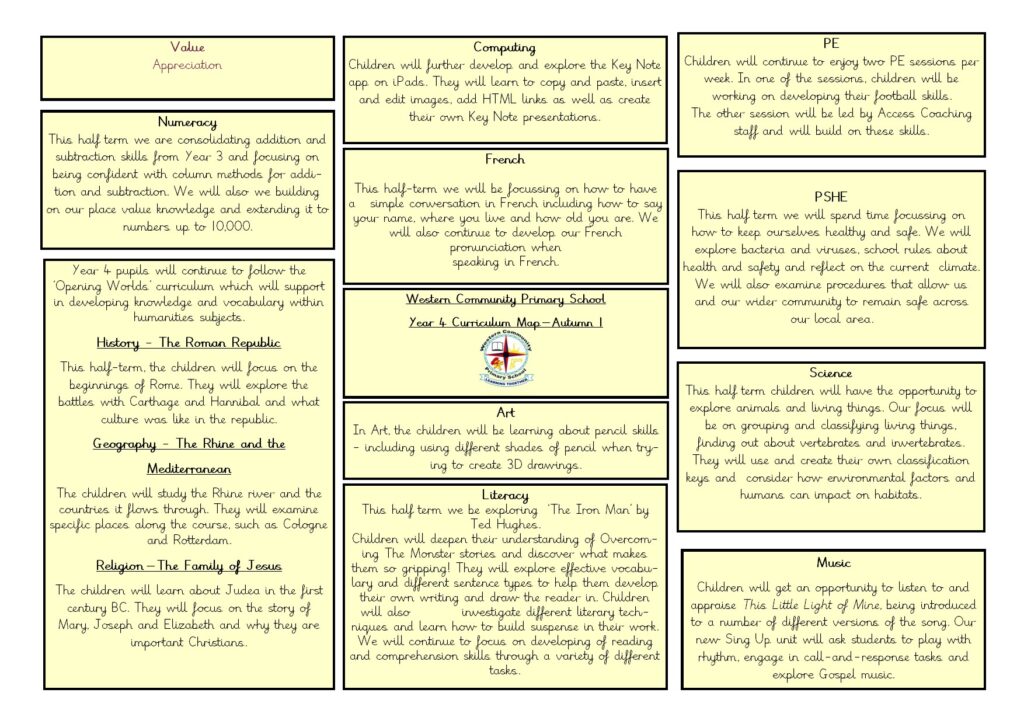 Value
Appreciation
Numeracy
This half term we are consolidating addition and
subtraction skills from Year 3 and focusing on
being confident with column methods for addi-
tion and subtraction. We will also we building
on our place value knowledge and extending it to
numbers up to 10,000.
Year 4 pupils will continue to follow the
'Opening Worlds' curriculum which will support
in developing knowledge and vocabulary within
humanities subjects.
History - The Roman Republic
This half-term, the children will focus on the
beginnings of Rome. They will explore the
battles with Carthage and Hannibal and what
culture was like in the republic.
Geography - The Rhine and the
Mediterranean
The children will study the Rhine river and the
countries it flows through. They will examine
specific places along the course, such as Cologne
and Rotterdam.
Religion—The Family of Jesus
The children will learn about Judea in the first
century BC. They will focus on the story of
Mary, Joseph and Elizabeth and why they are
important Christians.
Computing
Children will further develop and explore the Key Note
app on iPads. They will learn to copy and paste, insert
and edit images, add HTML links as well as create
their own Key Note presentations.
French
This half-term we will be focussing on how to have
a simple conversation in French including how to say
your name, where you live and how old you are. We
will also continue to develop our French
pronunciation when
speaking in French.
Western Community Primary School
Year 4 Curriculum Map—Autumn 1
Western Community
Primary School
LEARNING TOGETHER
Art
In Art, the children will be learning about pencil skills
- including using different shades of pencil when try-
ing to create 3D drawings.
Literacy
This half term we be exploring 'The Iron Man' by
Ted Hughes.
Children will deepen their understanding of Overcom-
ing The Monster stories and discover what makes
them so gripping! They will explore effective vocabu-
lary and different sentence types to help them develop
their own writing and draw the reader in. Children
will also investigate different literary tech-
niques and learn how to build suspense in their work.
We will continue to focus on developing of reading
and comprehension skills through a variety of different
tasks.
PE
Children will continue to enjoy two PE sessions per
week. In one of the sessions, children will be
working on developing their football skills.
The other session will be led by Access Coaching
staff and will build on these skills.
PSHE
This half term we will spend time focussing on
how to keep ourselves healthy and safe. We will
explore bacteria and viruses, school rules about
health and safety and reflect on the current climate.
We will also examine procedures that allow us
and our wider community to remain safe across
our local area.
Science
This half term children will have the opportunity to
explore animals and living things. Our focus will
be on grouping and classifying living things,
finding out about vertebrates and invertebrates.
They will use and create their own classification
keys and consider how environmental factors and
humans can impact on habitats.
Music
Children will get an opportunity to listen to and
appraise This Little Light of Mine, being introduced
to a number of different versions of the song. Our
new Sing Up unit will ask students to play with
rhythm, engage in call-and-response tasks and
explore Gospel music.